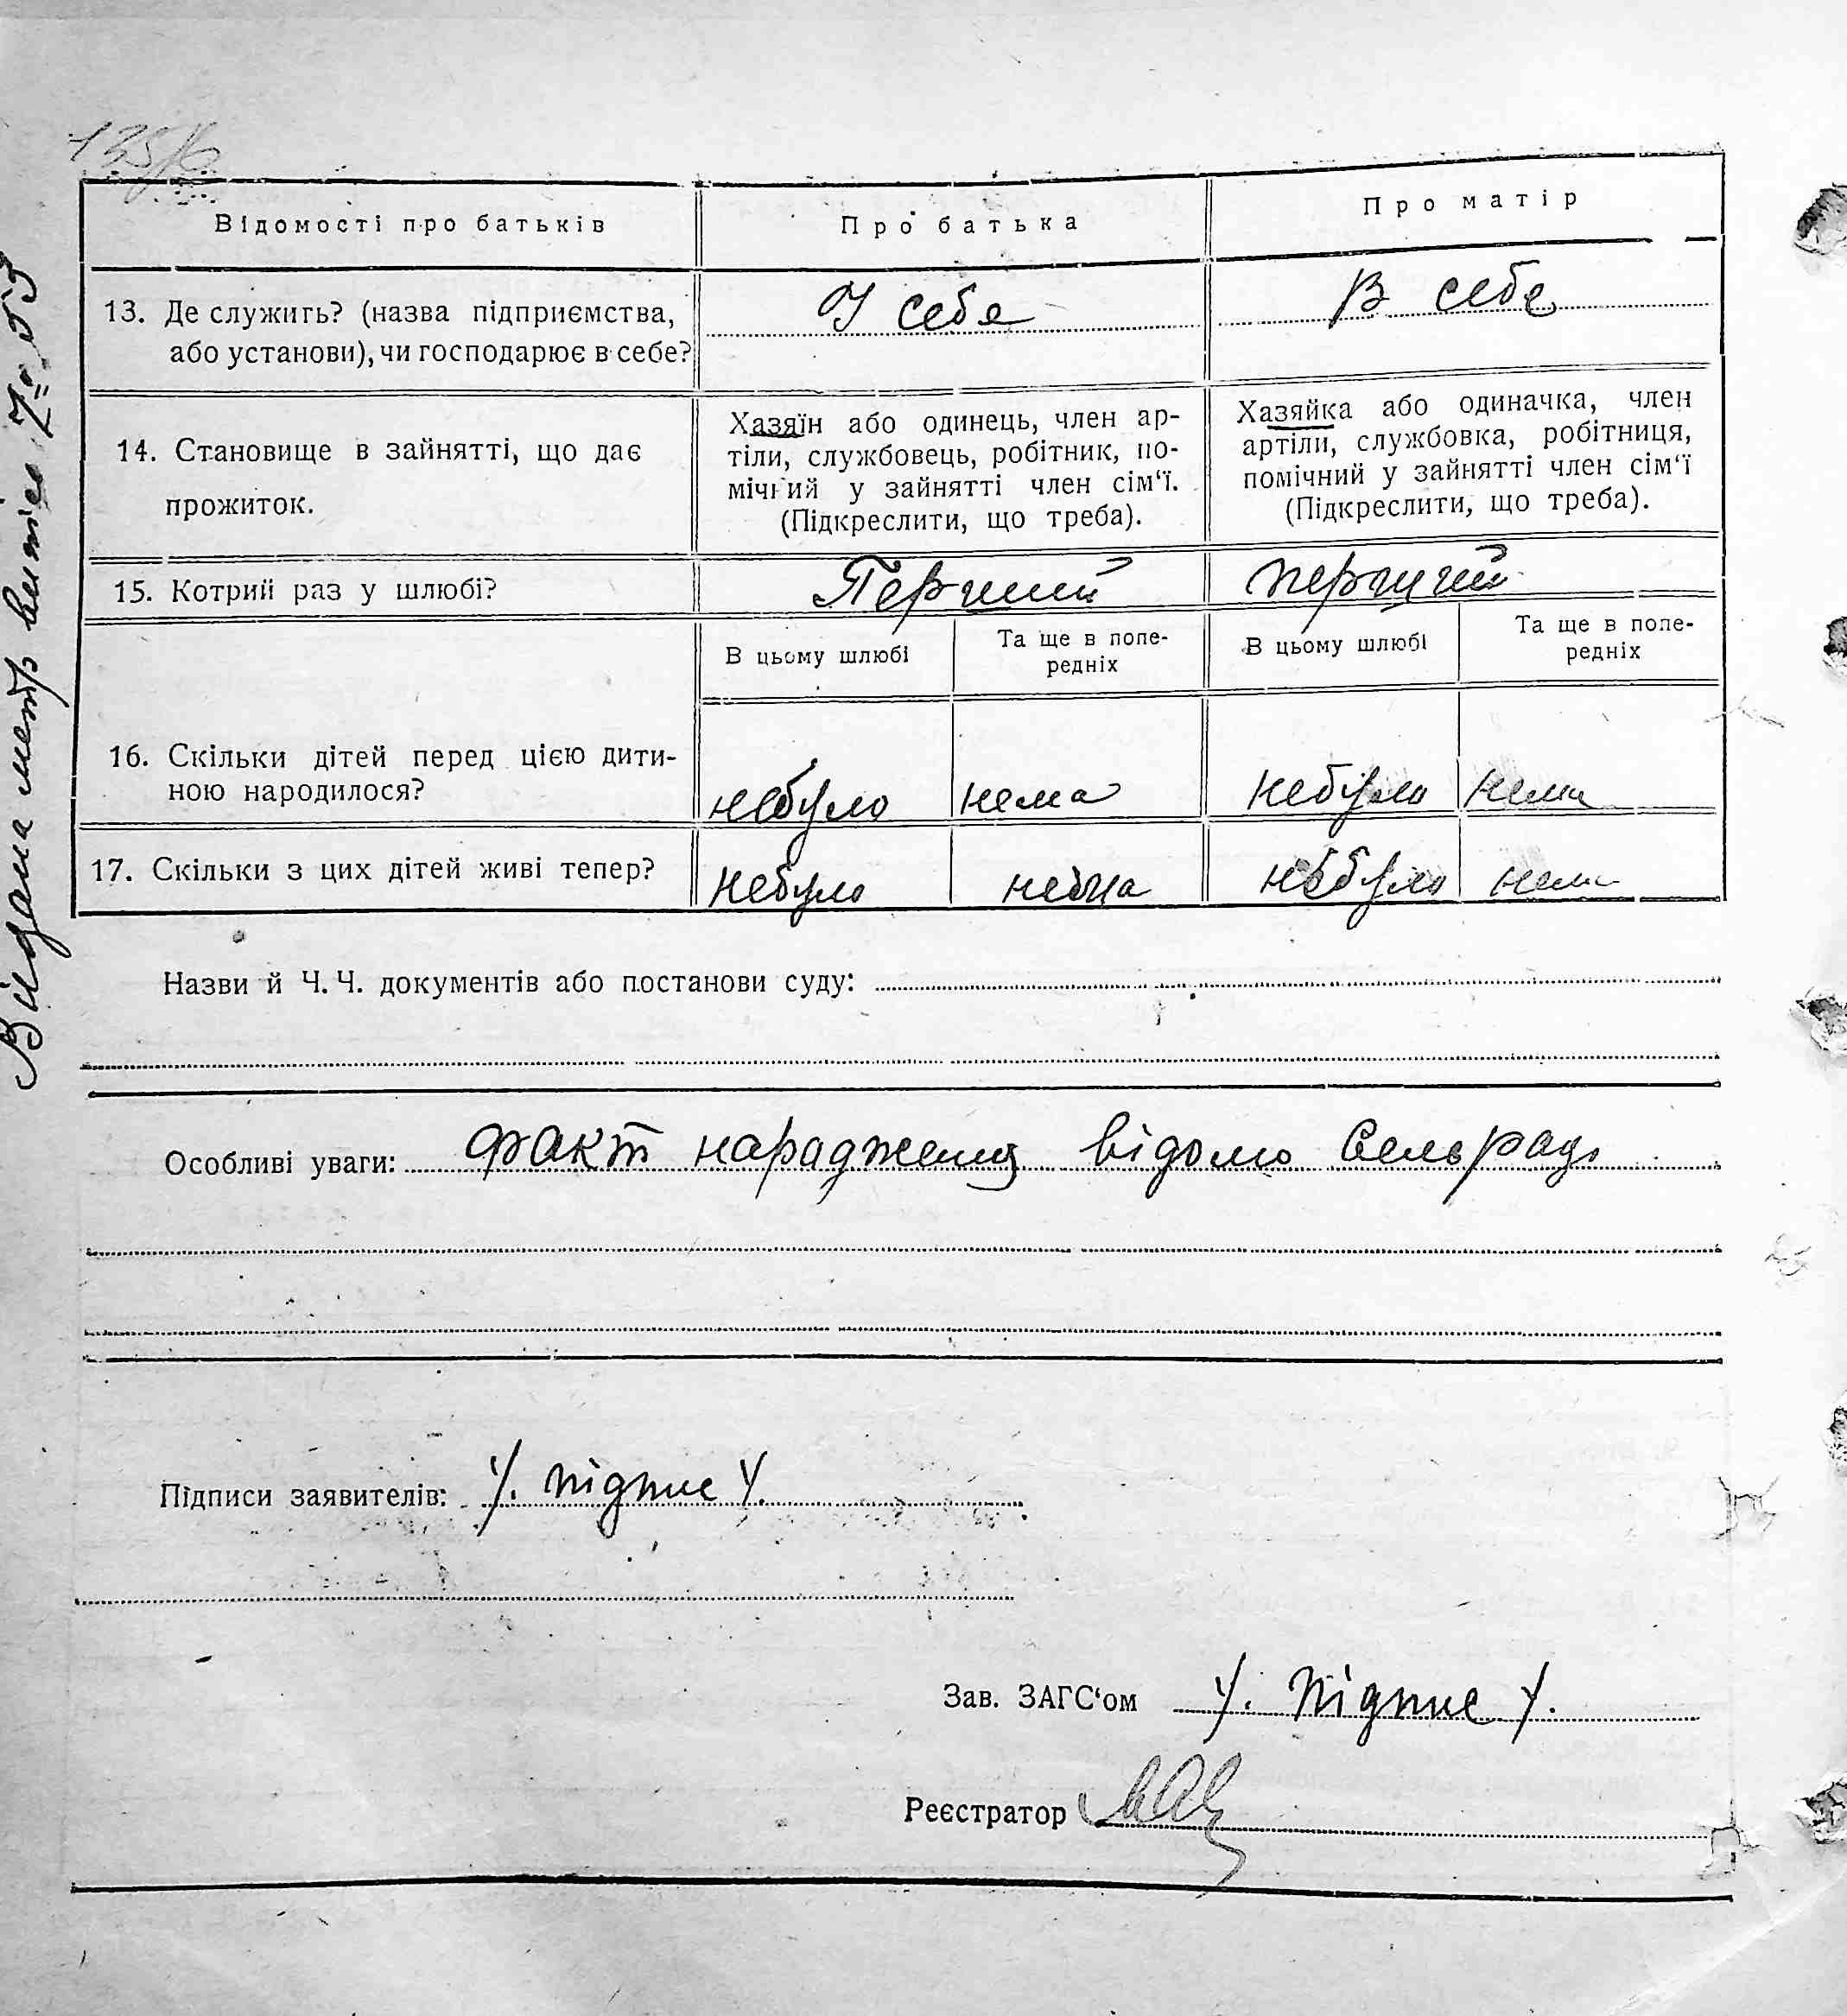 135/б
Відомості про батьків
Про батька
Про матір
13. Де служить? (назва підприємства,
або установи), чи господарює в себе?
У себя
В себе
14. Становище в зайнятті, що дає
прожиток.
Хазяїн або одинець, член ар-
тіли, службовець, робітник, по-
мічний у зайнятті член сім‘ї.
(Підкреслити, що треба).
Хазяйка або одиначка, член
артіли, службовка, робітниця,
помічний у зайнятті член сім‘ї
(Підкреслити, що треба).
15. Котрий раз у шлюбі?
Перший
перший
В цьому шлюбі
Та ще в попе-
редніх
В цьому шлюбі
Та ще в попе-
редніх
16. Скільки дітей перед цією дити-
ною народилося?
небуло
нема
небуло
нема
17. Скільки з цих дітей живі тепер?
небуло
нема
небуло
нема
Назви й Ч. Ч. документів або постанови суду:
Особливі уваги: Факт нараджения відомо Сельраді
Підписи заявителів: /. підпис /.
Зав. ЗАГС‘ом /. підпис /.
Реєстратор
Видана метр випис